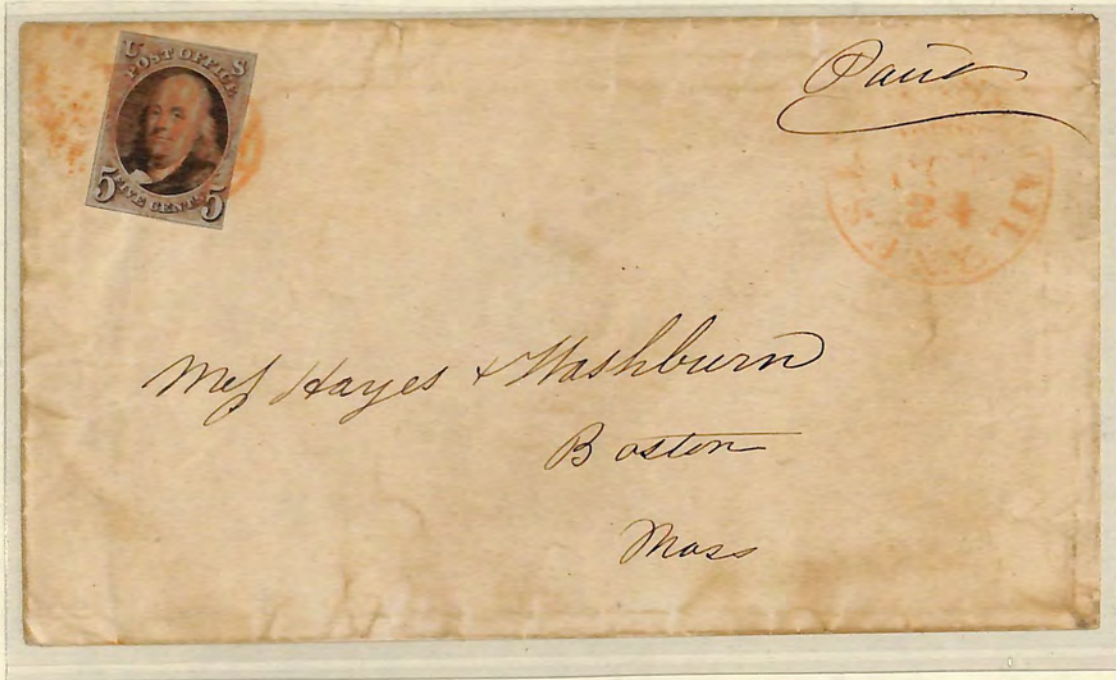 U S
POST OFFICE
FIVE CENTS
5 5
Paid
24
MAIL
N.Y.
Mess Hayes & Washburn
Boston
Mass